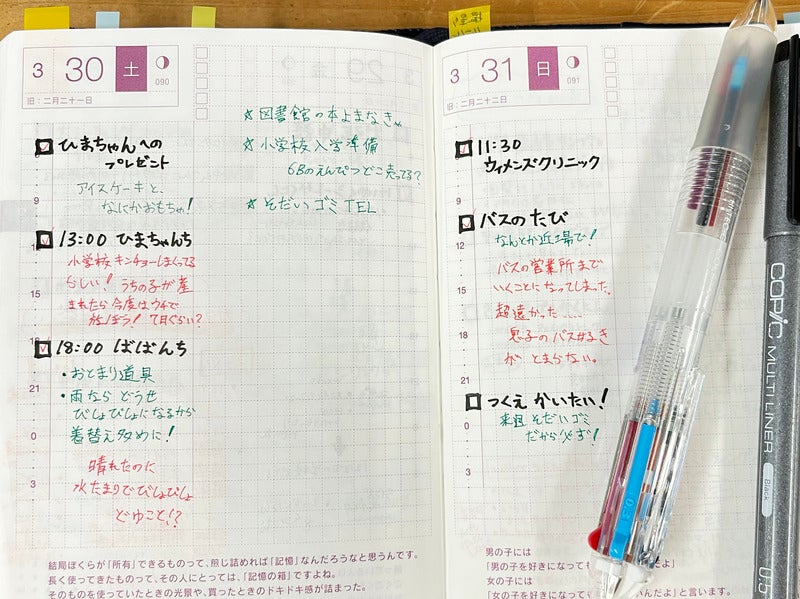 3 30 土
090
旧：二月二十一日
ひまちゃんへの
プレゼント
アイスケーキと、
なにかおもちゃ！
13:00 ひまちゃんち
小学校キンチョーしまくってる
らしい！ うちの子が産
まれたら今度はウチで
遊ぼう！ 7日ぐらい？
18:00 ばばんち
・おとまり道具
・雨なら どうせ
びしょびしょになるから
着替え多めに！
晴れたのに
水たまりでびしょびしょ
どゆこと!?
9
12
15
18
21
0
3
☆図書館の本よまなきゃ
☆小学校入学準備
6Bのえんぴつどこ売ってる？
☆そだいゴミTEL
結局ぼくらが「所有」できるものって、煎じ詰めれば「記憶」なんだろうなと思うんです。
長く使ってきたものって、その人にとっては、「記憶の箱」ですよね。
そのものを使っていたときの光景や、買ったときのドキドキ感が詰まった。
3 31 日
091
旧：二月二十二日
11:30
ウィメンズクリニック
バスのたび
なんとか近場で！
バスの営業所まで
いくことになってしまった。
超遠かった……
息子のバス好き
が とまらない。
つくえ かいたい！
来週 そだいゴミ
だから必ず！
9
12
15
18
21
0
3
男の子には
「男の子を好きになっても
だよ」
女の子には
「女の子を好きになって
いんだよ」と言います。
COPIC MULTI LINER
Black
0.5